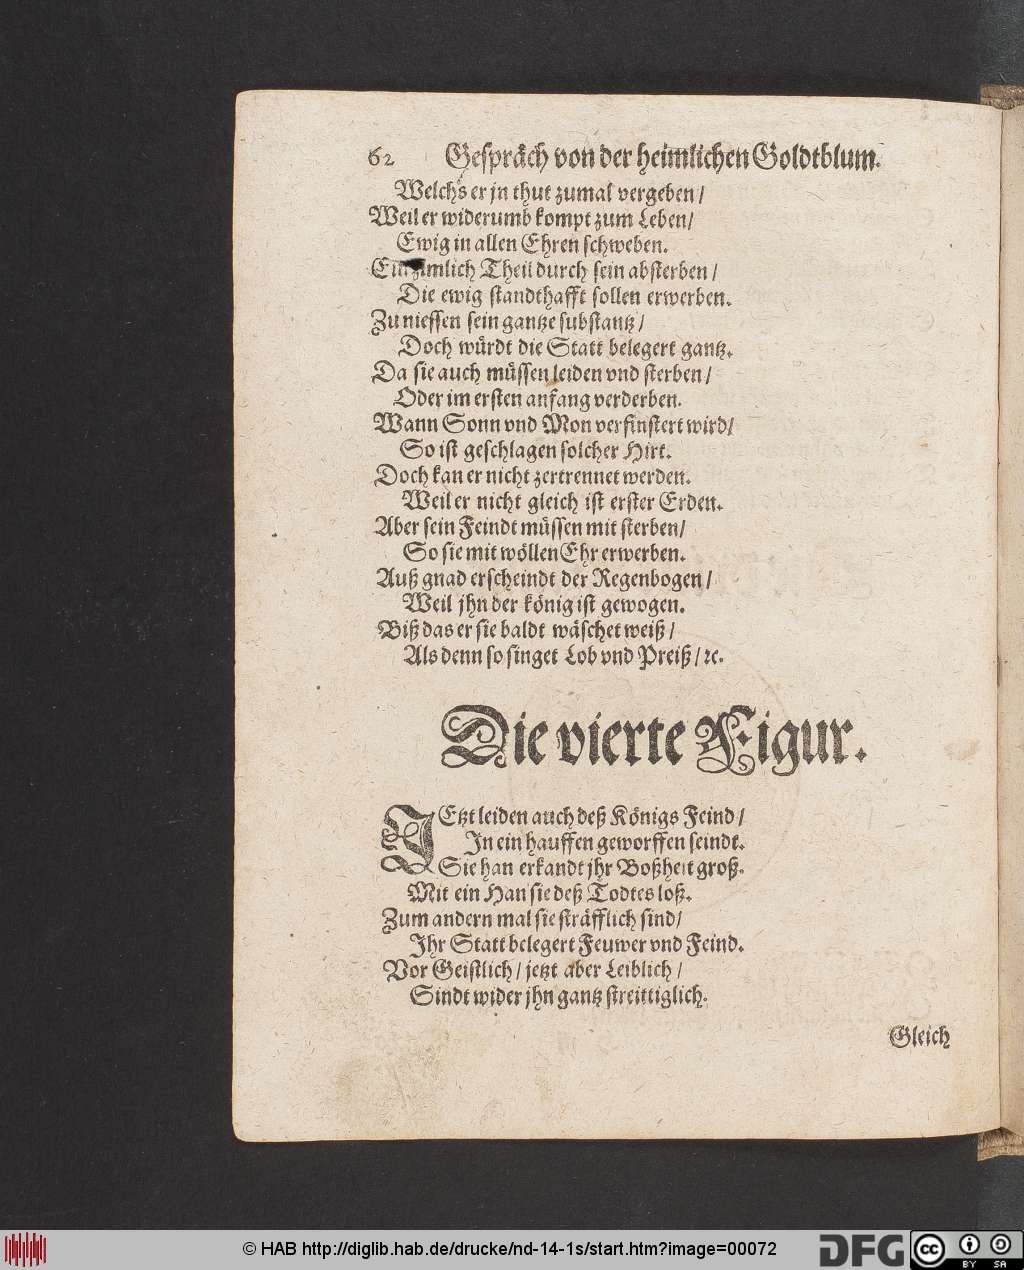 62 Gespräch von der heimlichen Goldtblum.
Welchs er jn thut zumal vergeben/
Weil er widerumb kompt zum Leben/
Ewig in allen Ehren schweben.
Ein zimlich Theil durch sein absterben/
Die ewig standthafft sollen erwerben.
Zu niessen sein gantze substantz/
Doch würdt die Statt belegert gantz.
Da sie auch müssen leiden vnd sterben/
Oder im ersten anfang verderben.
Wann Sonn vnd Mon verfinstert wird/
So ist geschlagen solcher Hirt.
Doch kan er nicht zertrennet werden.
Weil er nicht gleich ist erster Erden.
Aber sein Feindt müssen mit sterben/
So sie mit wöllen Ehr erwerben.
Auß gnad erscheindt der Regenbogen/
Weil jhn der könig ist gewogen.
Biß das er sie baldt wäschet weiß/
Als denn so singet Lob vnd Preiß/ ꝛc.
Die vierte Figur.
JEtzt leiden auch deß Königs Feind/
In ein hauffen geworffen seindt.
Sie han erkandt jhr Boßheit groß.
Mit ein Han sie deß Todtes loß.
Zum andern mal sie sträfflich sind/
Ihr Statt belegert Feuwer vnd Feind.
Vor Geistlich/ jetzt aber Leiblich/
Sindt wider jhn gantz streittiglich.
Gleich
© HAB http://diglib.hab.de/drucke/nd-14-1s/start.htm?image=00072
DFG
cc
BY SA